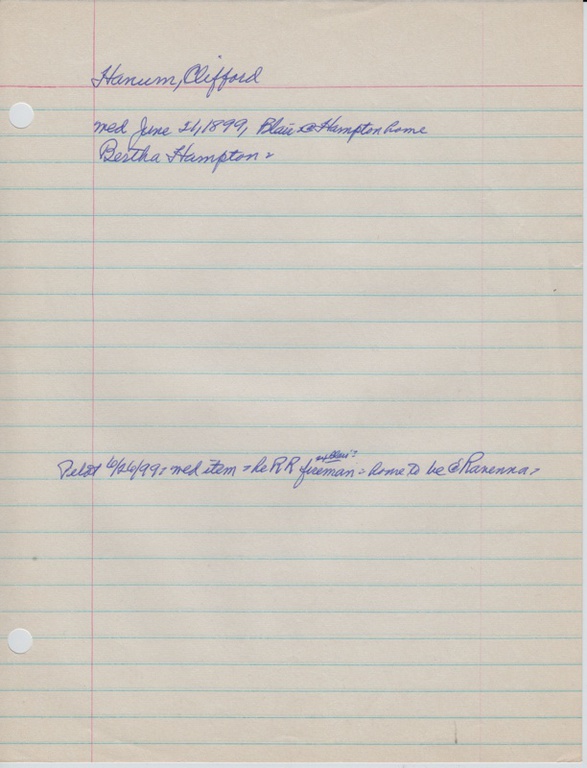 Hanum, Clifford
wed June 21, 1899, Blair @ Hampton home
Bertha Hampton =
ex Blair =
Pilot 6/26/99 = wed item = he RR fireman = home to be @ Ravenna =